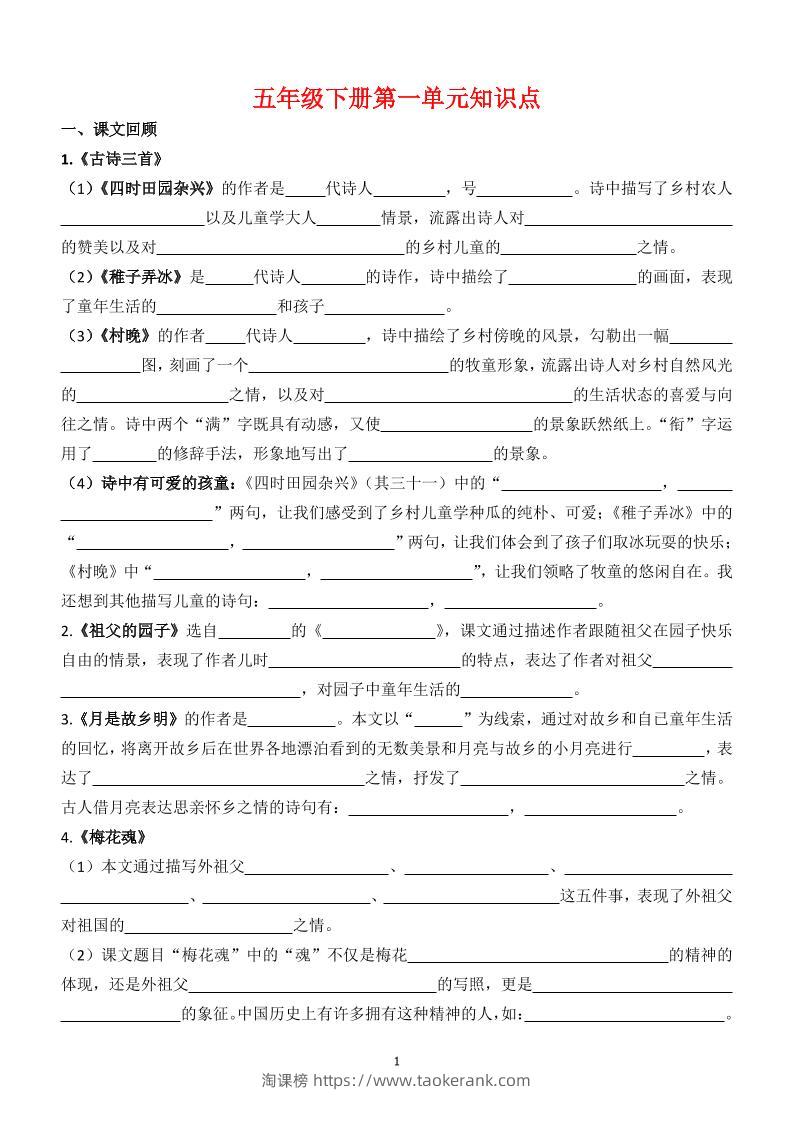 五年级下册第一单元知识点
一、课文回顾
1.《古诗三首》
（1）《四时田园杂兴》的作者是_____代诗人_________，号____________。诗中描写了乡村农人
__________________以及儿童学大人________情景，流露出诗人对__________________________
的赞美以及对_______________________________的乡村儿童的_________________之情。
（2）《稚子弄冰》是______代诗人________的诗作，诗中描绘了________________的画面，表现
了童年生活的_______________和孩子_______________。
（3）《村晚》的作者_____代诗人_________，诗中描绘了乡村傍晚的风景，勾勒出一幅________
__________图，刻画了一个_________________________的牧童形象，流露出诗人对乡村自然风光
的___________________之情，以及对_______________________________的生活状态的喜爱与向
往之情。诗中两个“满”字既具有动感，又使___________________的景象跃然纸上。“衔”字运
用了________的修辞手法，形象地写出了__________________的景象。
（4）诗中有可爱的孩童：《四时田园杂兴》（其三十一）中的“____________________，_______
___________________”两句，让我们感受到了乡村儿童学种瓜的纯朴、可爱；《稚子弄冰》中的
“___________________，___________________”两句，让我们体会到了孩子们取冰玩耍的快乐；
《村晚》中“___________________，___________________”，让我们领略了牧童的悠闲自在。我
还想到其他描写儿童的诗句：____________________，___________________。
2.《祖父的园子》选自_________的《______________》，课文通过描述作者跟随祖父在园子快乐
自由的情景，表现了作者儿时________________________的特点，表达了作者对祖父__________
______________________________，对园子中童年生活的______________。
3.《月是故乡明》的作者是___________。本文以“______”为线索，通过对故乡和自己童年生活
的回忆，将离开故乡后在世界各地漂泊看到的无数美景和月亮与故乡的小月亮进行_________，表
达了__________________________________之情，抒发了____________________________之情。
古人借月亮表达思亲怀乡之情的诗句有：____________________，___________________。
4.《梅花魂》
（1）本文通过描写外祖父__________________、__________________、_____________________
________________、_____________________、______________________这五件事，表现了外祖父
对祖国的_____________________之情。
（2）课文题目“梅花魂”中的“魂”不仅是梅花_________________________________的精神的
体现，还是外祖父_______________________________的写照，更是_________________________
_______________的象征。中国历史上有许多拥有这种精神的人，如：_________________________。
1
淘课榜 https://www.taokerank.com